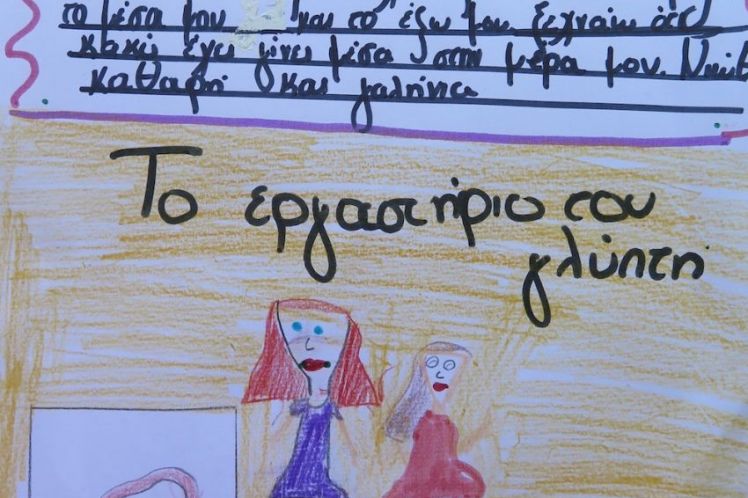 το μέσα μου και το έξω μου ξεχνάω ό,τι
κακό έχει γίνει μέσα στην μέρα μου. Νιώθ
καθαρή και γαλήνια
Το εργαστήριο του
γλύπτη